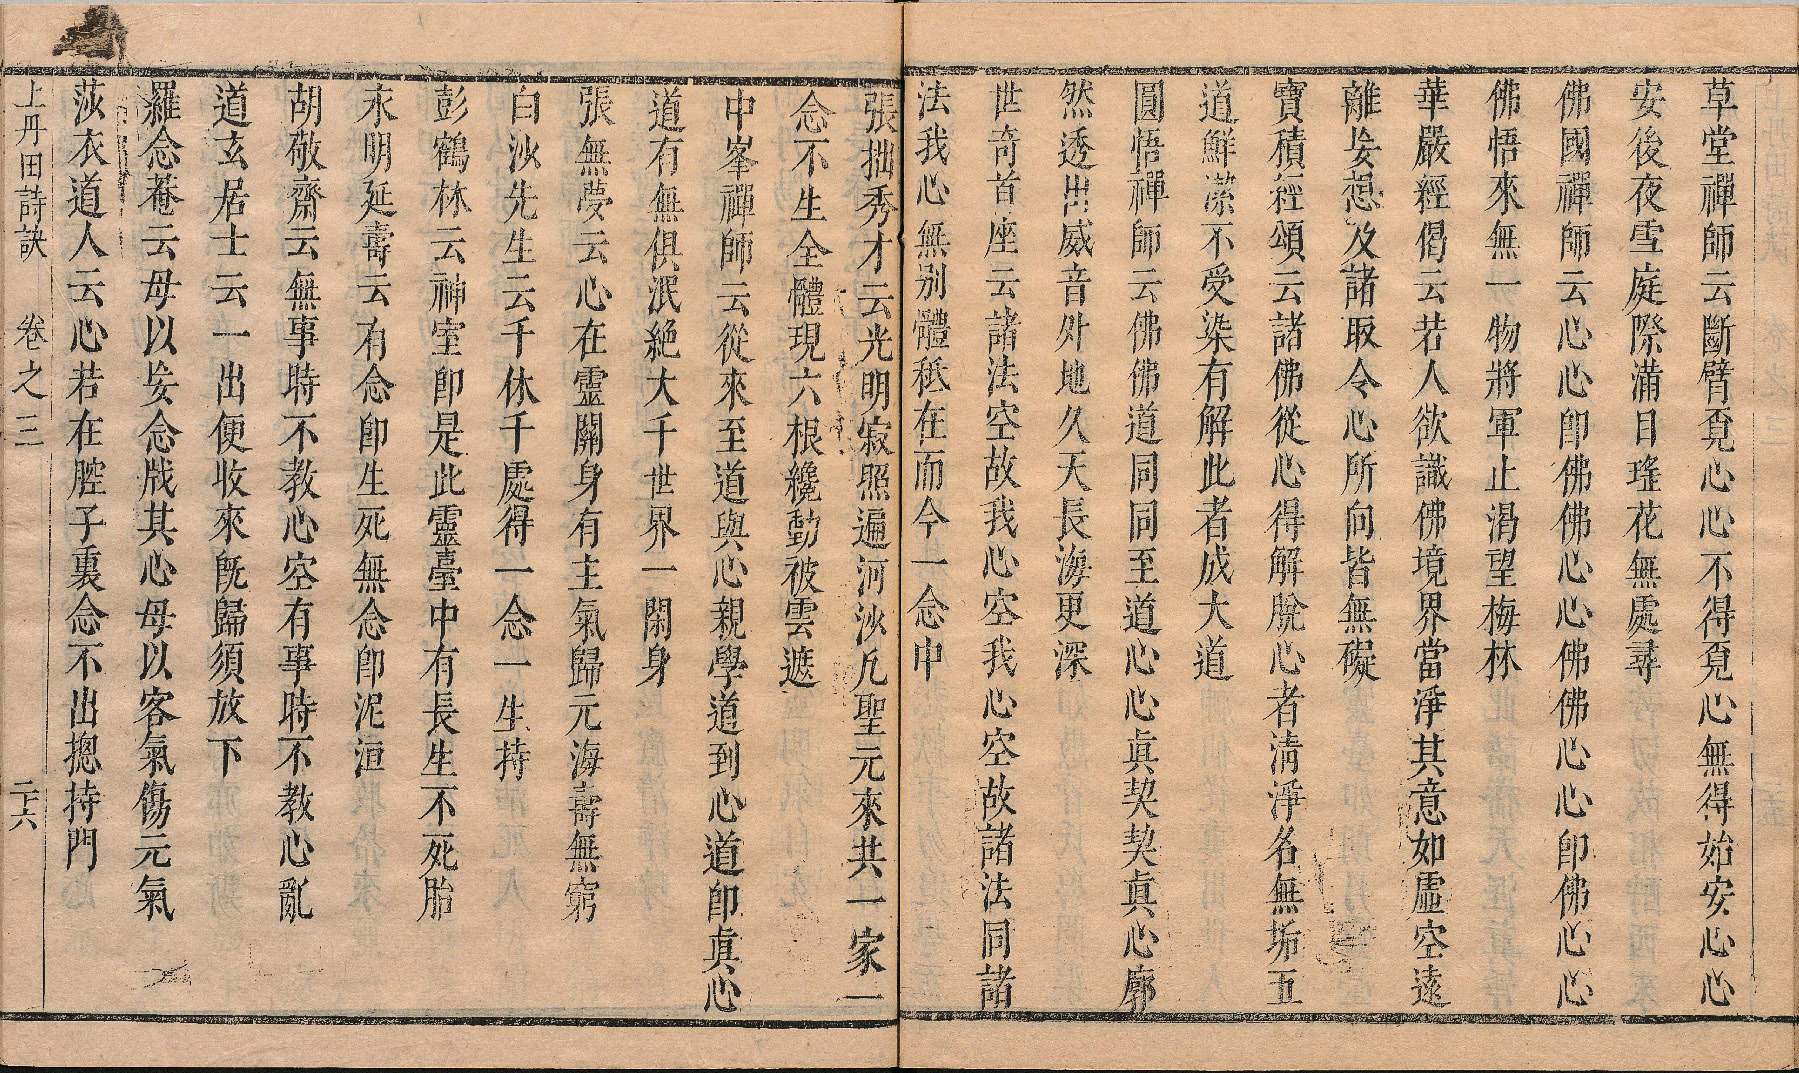 草堂禪師云斷臂覔心心不得覔心無得始安心心
安後夜雪庭際滿目瑤花無處尋
佛國禪師云心心即佛佛心心佛佛心心即佛心心
佛悟來無一物將軍止渴望梅林
華嚴經偈云若人欲識佛境界當淨其意如虛空遠
離妄想及諸取令心所向皆無礙
寶積經頌云諸佛從心得解脫心者清淨名無垢五
道鮮潔不受染有解此者成大道
圓悟禪師云佛佛道同同至道心心眞契契眞心廓
然透出威音外地久天長海更深
世奇首座云諸法空故我心空我心空故諸法同諸
法我心無別體秖在而今一念中
張拙秀才云光明寂照遍河沙凢聖元來共一家一
念不生全體現六根纔動被雲遮
中峯禪師云從來至道與心親學道到心道即眞心
道有無俱泯絶大千世界一閑身
張無夢云心在靈關身有主氣歸元海壽無窮
白沙先生云千休千處得一念一生持
彭鶴林云神室即是此靈臺中有長生不死胎
永明延壽云有念即生死無念即泥洹
胡敬齋云無事時不教心空有事時不教心亂
道玄居士云一出便收來旣歸須放下
羅念菴云毋以妄念戕其心毋以客氣傷元氣
莎衣道人云心若在腔子裏念不出摠持門
上丹田詩訣 卷之三 二十六